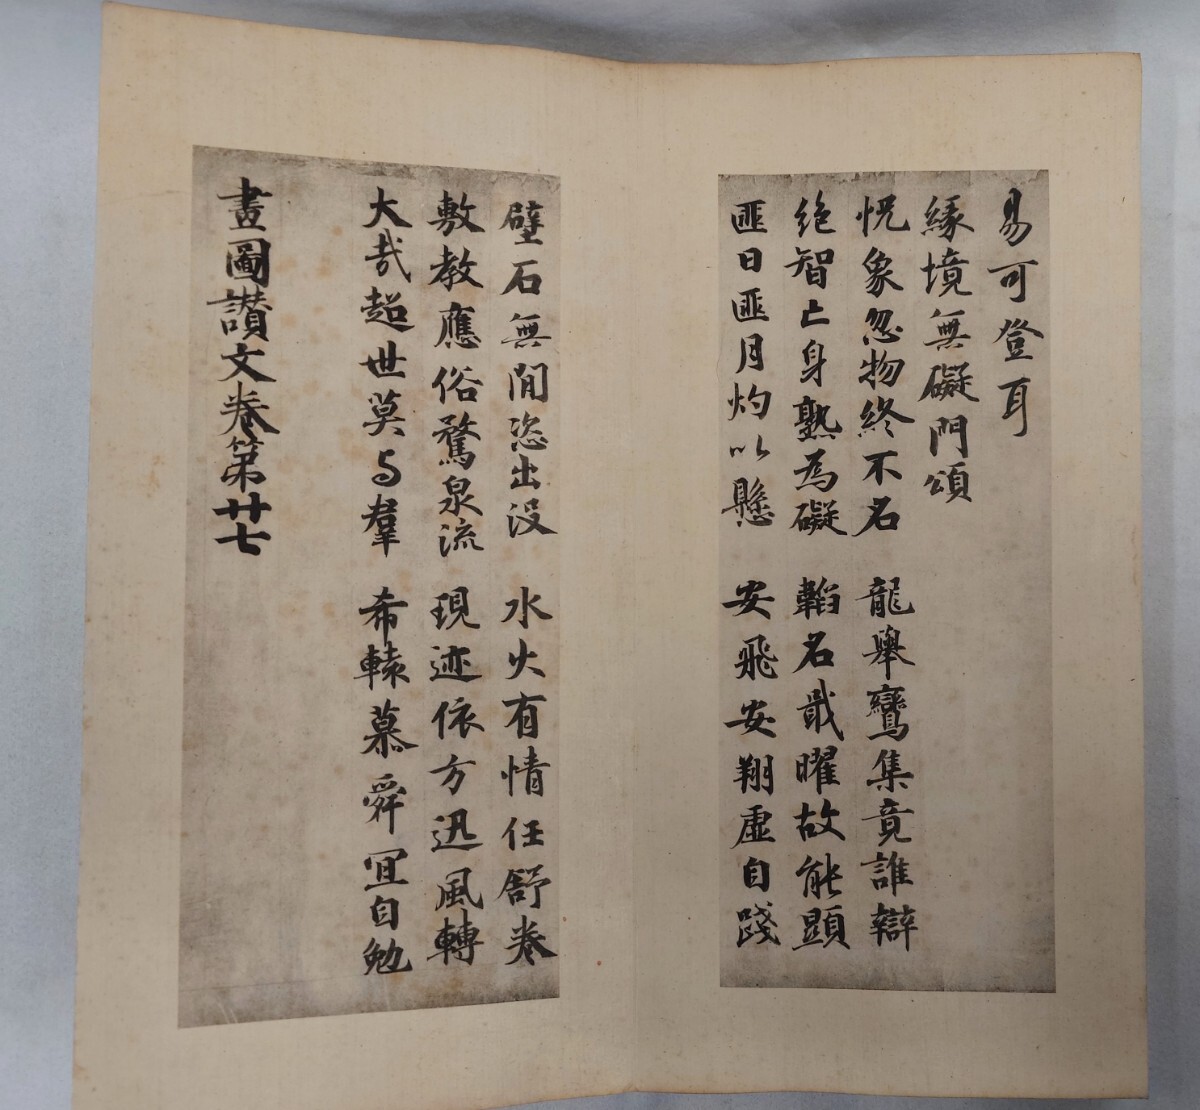 易可登耳
緣境無礙門頌
怳象忽物終不名　龍舉鸞集竟誰辯
絶智亡身孰為礙　韜名戢曜故能顯
匪日匪月灼以懸　安飛安翔虛自踐
壁石無間恣出没　水火有情任舒卷
敷教應俗驚泉流　現迹依方迅風轉
大哉超世莫与羣　希轅慕舜宜自勉
畫圖讃文卷第廿七